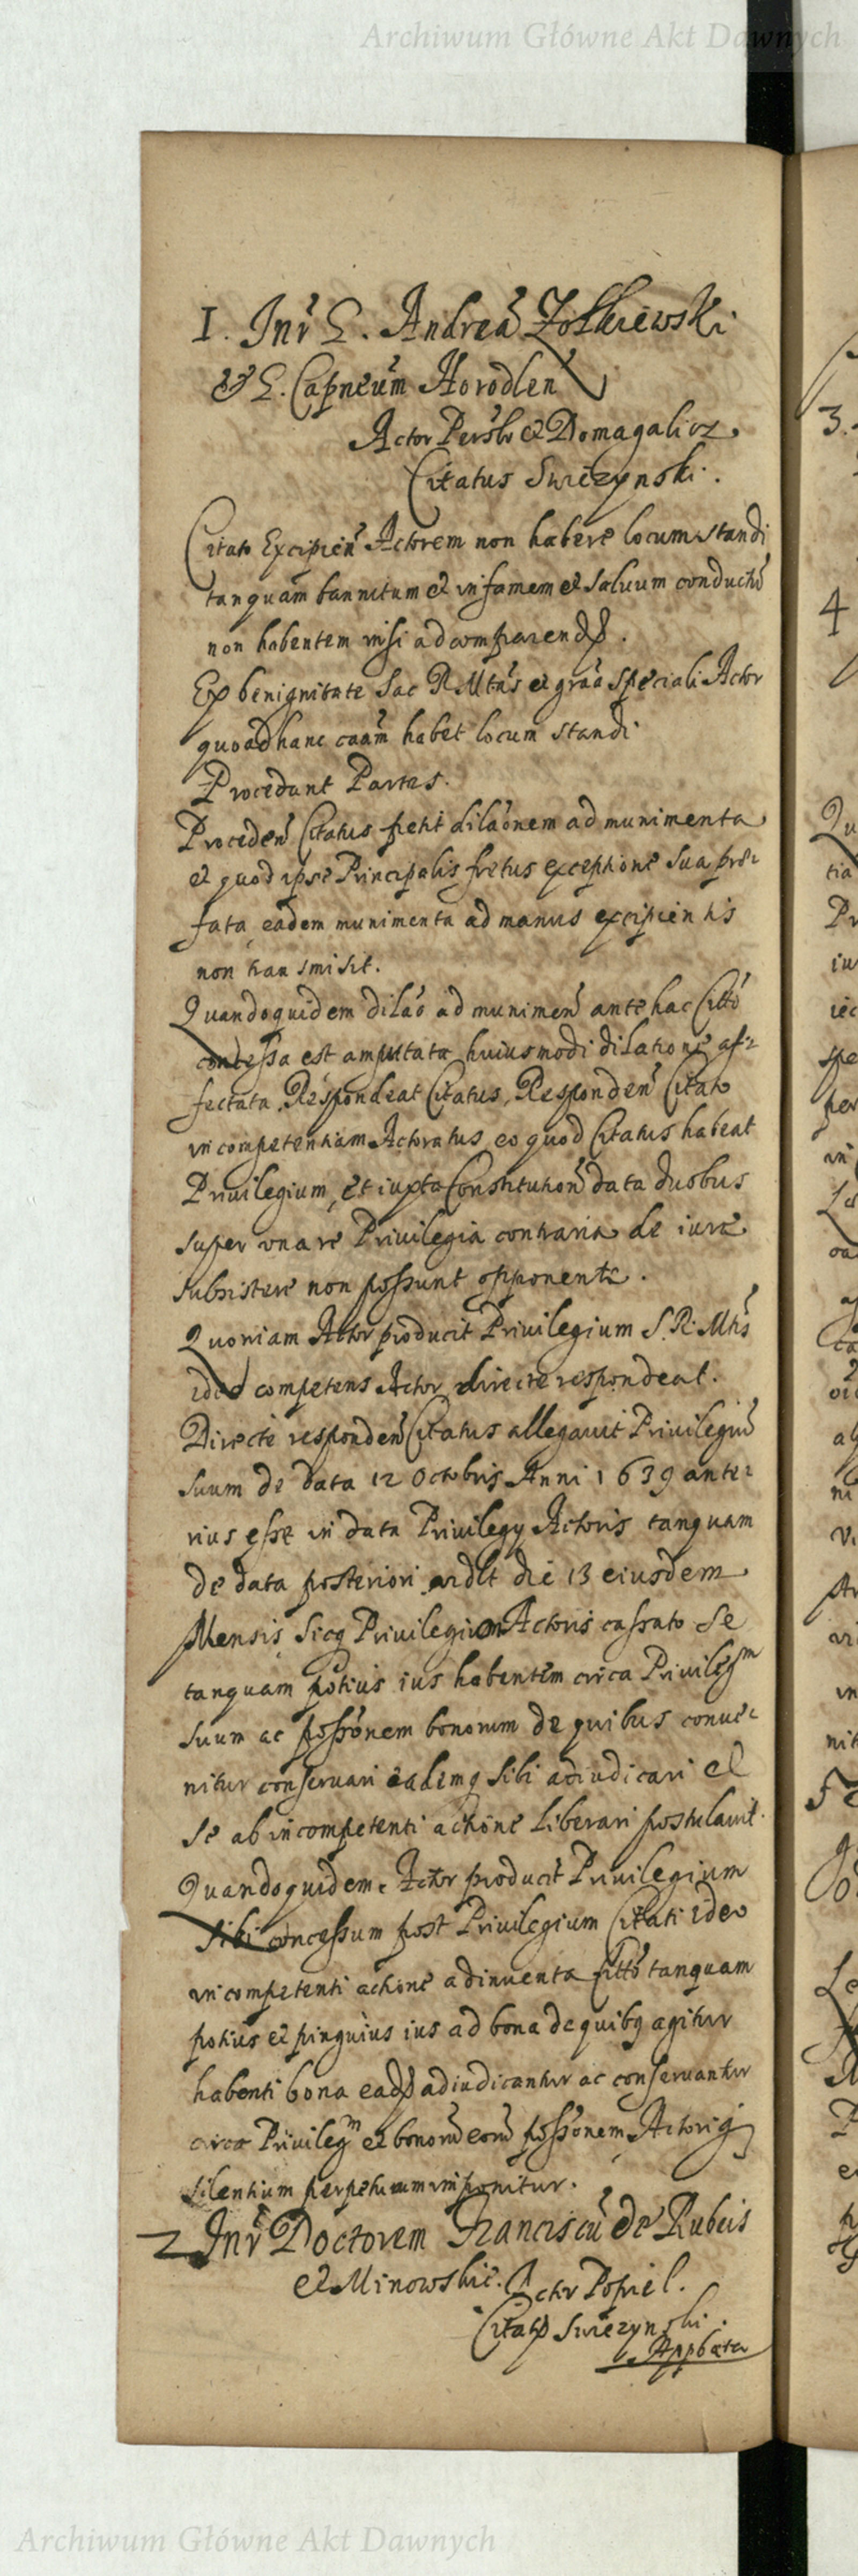 Archiwum Główne Akt Dawnych
1. Inr̃ G. Andreã Zołkiewski
et G. Capneum̃ Horodlen
Actor Persłr et Domagalicz
Citatus Swiezynski.
Citato Excipien̄ Actorem non habere locum standi
tanquam bannitum et infamem et saluum conductũ
non habentem nisi ad comparend.
Ex benignitate Sac R Mtis et grãa speciali Actor
quoad hanc caãm habet locum standi
Procedant Partes.
Proceden̄ Citatus petit dilaõnem ad munimenta
et quod ipse Principalis fretus exceptione sua præ=
fata, eadem munimenta ad manus excipientis
non transmisit.
Quandoquidem dilaõ ad munimen̄ antehac Citto
concessa est amputata huiusmodi dilatione af=
fectata, Respondeat Citatus, Responden̄ Citato
incompetentiam Actoratus, eo quod Citatus habeat
Privilegium, et iuxta Constitution̄ data duobus
super una re Privilegia contraria de iure
subsistere non possunt opponenti.
Quoniam Actor producit Privilegium S. R. Mtis
ideo competens Actor directe respondeat.
Directe responden̄ Citatus allegavit Privilegiũ
suum de data 12 Octobris Anni 1639 ante=
rius esse in data Privilegy Actoris tanquam
de data posteriori vidlt die 13 eiusdem
Mensis Sicq Privilegium Actoris cassato se
tanquam potius ius habentem circa Privilegm
suum ac possõnem bonorum de quibus conve=
nitur conservari eademq sibi adiudicari et
se ab incompetenti actione liberari postulavit.
Quandoquidem Actor producit Privilegium
sibi concessum post Privilegium Citati ideo
incompetenti actione adinventa Citto tanquam
potius et pinguius ius ad bona de quibq agitur
habenti bona ead adiudicantur ac conservantur
circa Privilegm et bonorũ eorũ possõnem, Actoriq
silentium perpetuum imponitur.
2 Inr̃ Doctorem Franciscũ de Rubeis
et Minowskie. Actor Popiel.
Citat Swiezynski.
Appbata
3.
4
Archiwum Główne Akt Dawnych